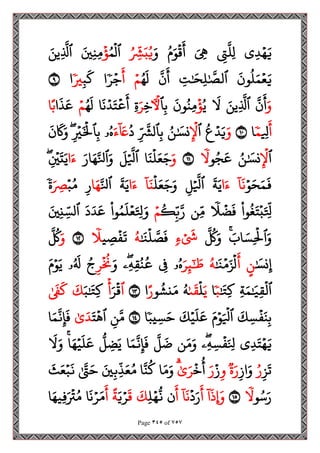 يَهْدِى لِلَّتِى هِىَ أَقْوَمُ وَيُبَشِّرُ الْمُؤْمِنِينَ الَّذِينَ
يَعْمَلُونَ الصَّـٰلِحَـٰتِ أَنَّ لَهُمْ أَجْرًا كَبِيرًا ٩
وَأَنَّ الَّذِينَ لَا يُؤْمِنُونَ بِالْأَخِرَةِ أَعْتَدْنَا لَهُمْ عَذَابًا
أَلِيمًا ١٠ وَيَدْعُ الْإِنسَـٰنُ بِالشَّرِّ دُعَآءَهُۥ بِالْخَيْرِ ۖ وَكَانَ
الْإِنسَـٰنُ عَجُولًا ١١ وَجَعَلْنَا الَّيْلَ وَالنَّهَارَ ءَايَتَيْنِ ۖ
فَمَحَوْنَآ ءَايَةَ الَّيْلِ وَجَعَلْنَآ ءَايَةَ النَّهَارِ مُبْصِرَةً
لِّتَبْتَغُوا۟ فَضْلًا مِّن رَّبِّكُمْ وَلِتَعْلَمُوا۟ عَدَدَ السِّنِينَ
وَالْحِسَابَ ۚ وَكُلَّ شَىْءٍ فَصَّلْنَـٰهُ تَفْصِيلًا ١٢ وَكُلَّ
إِنسَـٰنٍ أَلْزَمْنَـٰهُ طَـٰٓئِرَهُۥ فِى عُنُقِهِۦ ۖ وَنُخْرِجُ لَهُۥ يَوْمَ
الْقِيَـٰمَةِ كِتَـٰبًا يَلْقَىٰهُ مَنشُورًا ١٣ اقْرَأْ كِتَـٰبَكَ كَفَىٰ
بِنَفْسِكَ الْيَوْمَ عَلَيْكَ حَسِيبًا ١٤ مَّنِ اهْتَدَىٰ فَإِنَّمَا
يَهْتَدِى لِنَفْسِهِۦ ۖ وَمَن ضَلَّ فَإِنَّمَا يَضِلُّ عَلَيْهَا ۚ وَلَا
تَزِرُ وَازِرَةٌ وِزْرَ أُخْرَىٰ ۗ وَمَا كُنَّا مُعَذِّبِينَ حَتَّىٰ نَبْعَثَ
رَسُولًا ١٥ وَإِذَآ أَرَدْنَآ أَن نُّهْلِكَ قَرْيَةً أَمَرْنَا مُتْرَفِيهَا
Page ٣٤٥ of ٧٥٧